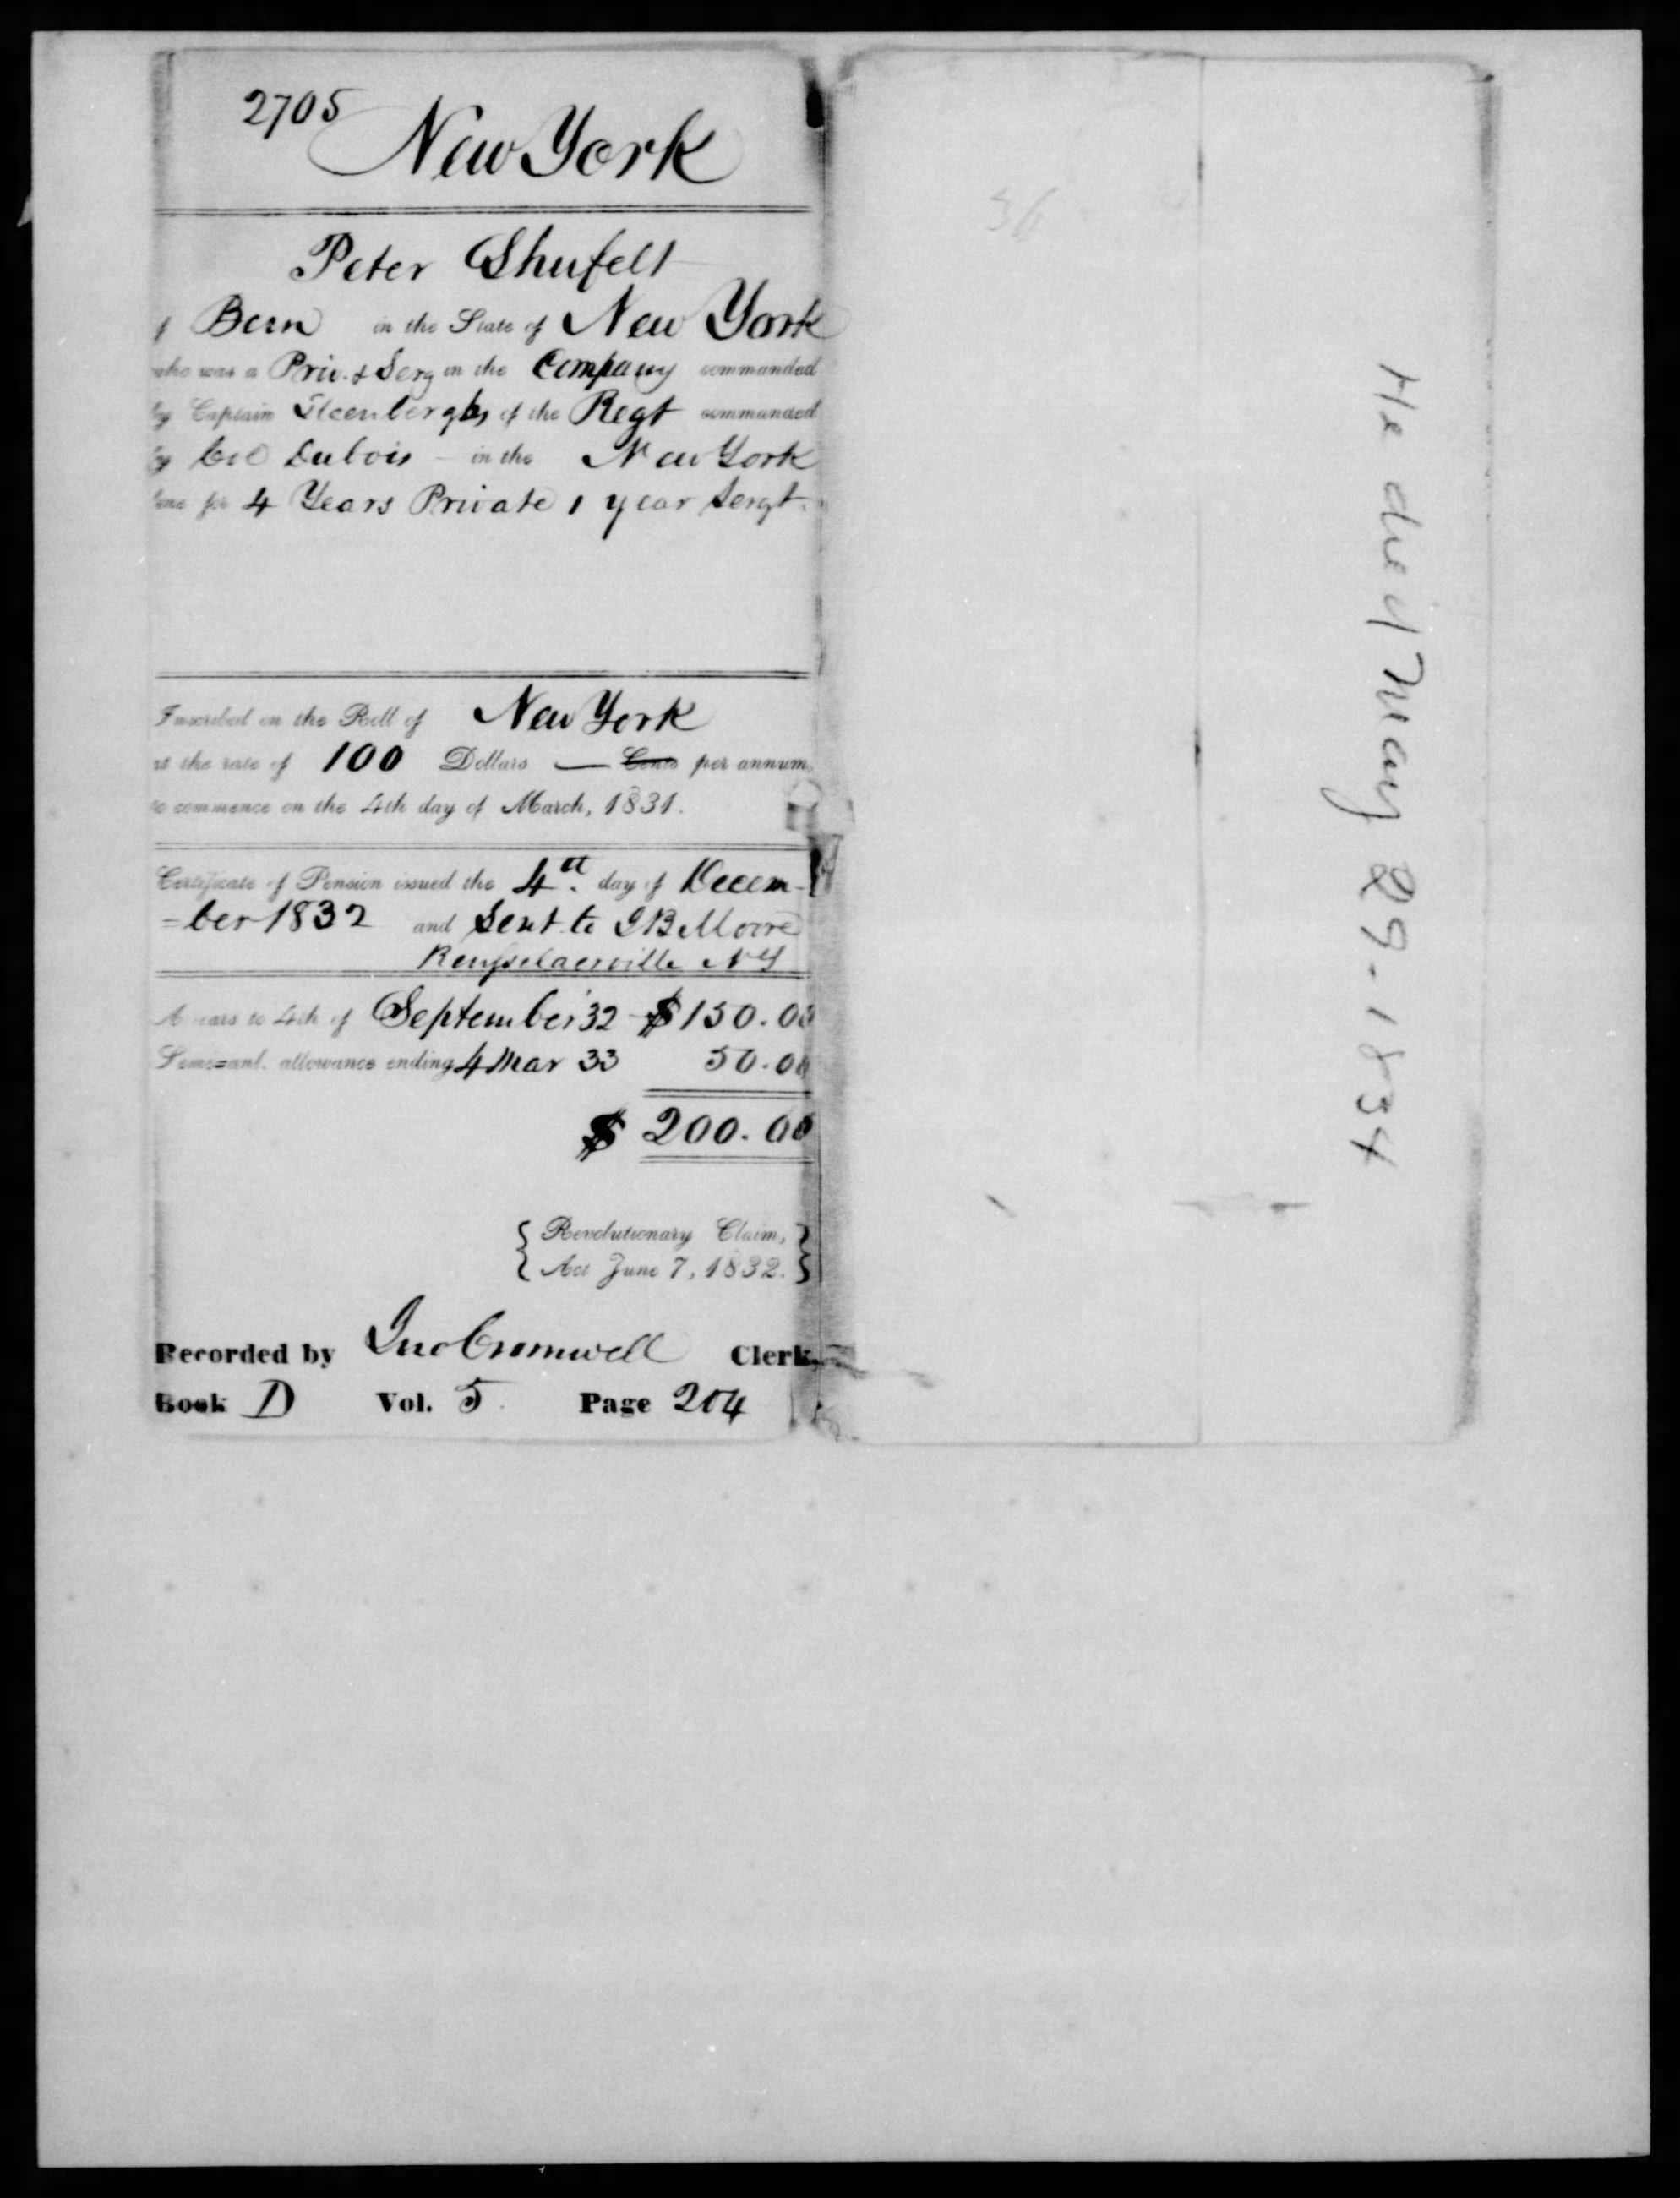 2705
New York
Peter Shufelt
of Bern in the State of New York
who was a Priv. & Serg in the Company commanded
by Captain Steenberghs of the Regt commanded
by Col Dubois – in the New York
line for 4 Years Private 1 year Sergt.
Inscribed on the Roll of New York
at the rate of 100 Dollars — Cents per annum,
to commence on the 4th day of March, 1831.
Certificate of Pension issued the 4th day of Decem-
=ber 1832 and Sent to J B Moore
Rensselaerville NY
Arrears to 4th of September 32 $150.00
Semi=anl. allowance ending 4 Mar 33 50.00
$ 200.00
{ Revolutionary Claim, }
{ Act June 7, 1832. }
Recorded by Jno Cromwell Clerk,
Book D Vol. 5 Page 204
36
He died May 29-1834